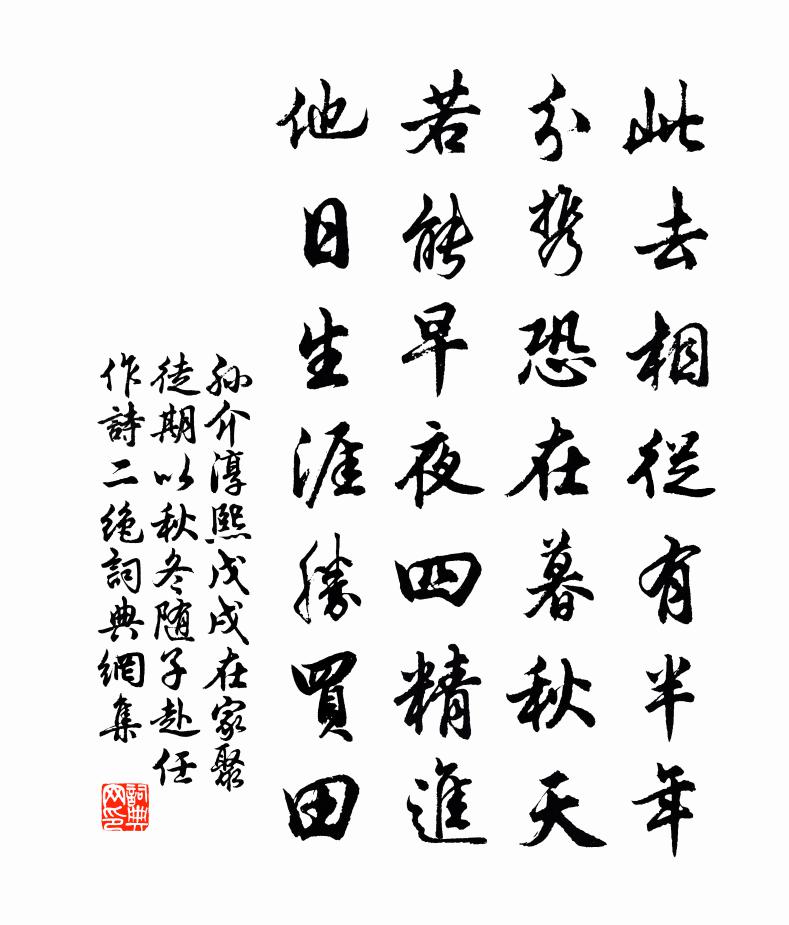 此去相從有半年
分携恐在暮秋天
若能早夜四精進
他日生涯勝買田
孙介淳熙戊戌在家聚
徒期以秋冬随子赴任
作詩二绝詞典網集
詞典
网印